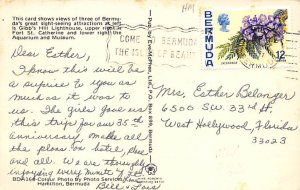 This card shows views of three of Bermu-
da's great sight-seeing attractions. At left
is Gibb's Hill Lighthouse, upper right is
Fort St. Catherine and lower right the
Aquarium and Museum.
HM
COME TO BERMUDA
THE ISLES OF BEAUTY
BERMUDA
12
Dear Esther,
I know this will be
a surprise to you as
much as it was to
us. The girls gave us
this trip for our 35th
anniversary, made all
the plans we hotel, plane
and all. We are thoroughly
enjoying every minute of it.
Bill & Lois
Mrs. Esther Belanger
6500 SW. 33rd St.
West Hollywood, Florida
33023
BDA168-Colour Photo by Photo Service
Hamilton, Bermuda